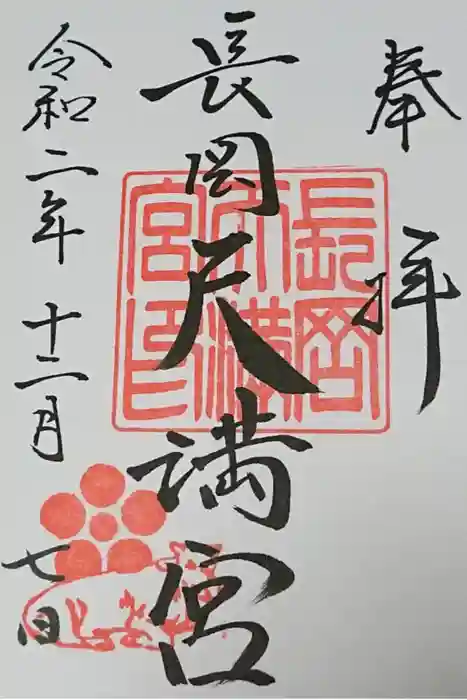 奉拝
長岡天満宮
長岡天満宮印
令和二年十二月七日